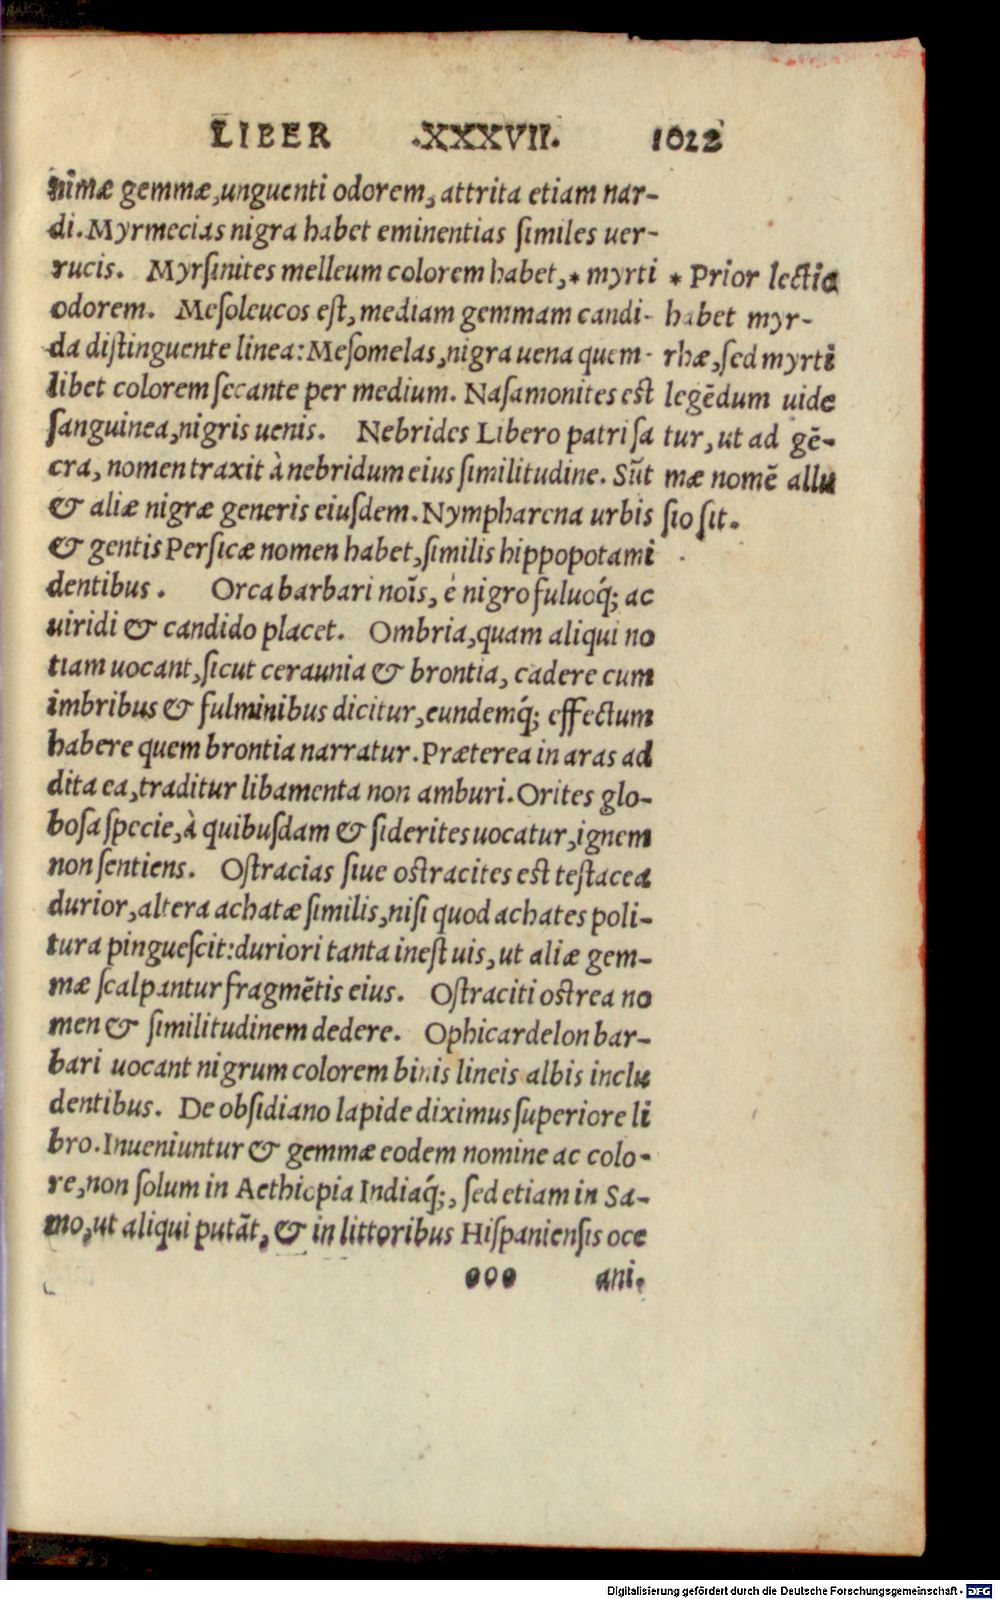 LIBER .XXXVII. 1022
nimæ gemmæ,unguenti odorem, attrita etiam nar-
di. Myrmecias nigra habet eminentias ſimiles uer-
rucis. Myrſinites melleum colorem habet,* myrti
odorem. Meſoleucos eſt, mediam gemmam candi-
da diſtinguente linea: Meſomelas,nigra uena quem-
libet colorem ſecante per medium. Naſamonites eſt
ſanguinea,nigris uenis. Nebrides Libero patri ſa
cra, nomen traxit à nebridum eius ſimilitudine. Sũt
& aliæ nigræ generis eiuſdem. Nympharena urbis
& gentis Perſicæ nomen habet, ſimilis hippopotami
dentibus. Orca barbari noĩs, è nigro fuluoq́; ac
uiridi & candido placet. Ombria,quam aliqui no
tiam uocant,ſicut ceraunia & brontia, cadere cum
imbribus & fulminibus dicitur,eundemq́; effectum
habere quem brontia narratur. Præterea in aras ad
dita ea,traditur libamenta non amburi. Orites glo-
boſa ſpecie,à quibuſdam & ſiderites uocatur, ignem
non ſentiens. Oſtracias ſiue oſtracites eſt teſtacea
durior,altera achatæ ſimilis,niſi quod achates poli-
tura pingueſcit: duriori tanta ineſt uis, ut aliæ gem-
mæ ſcalpantur fragmẽtis eius. Oſtraciti oſtrea no
men & ſimilitudinem dedere. Ophicardelon bar-
bari uocant nigrum colorem binis lineis albis inclu
dentibus. De obſidiano lapide diximus ſuperiore li
bro. Inueniuntur & gemmæ eodem nomine ac colo-
re,non ſolum in Aethiopia Indiaq́;, ſed etiam in Sa-
mo,ut aliqui putãt, & in littoribus Hiſpanienſis oce
ooo ani.
* Prior lectio
habet myr-
rhæ,ſed myrti
legẽdum uide
tur, ut ad gẽ-
mæ nomẽ allu
ſio ſit.
Digitalisierung gefördert durch die Deutsche Forschungsgemeinschaft - DFG